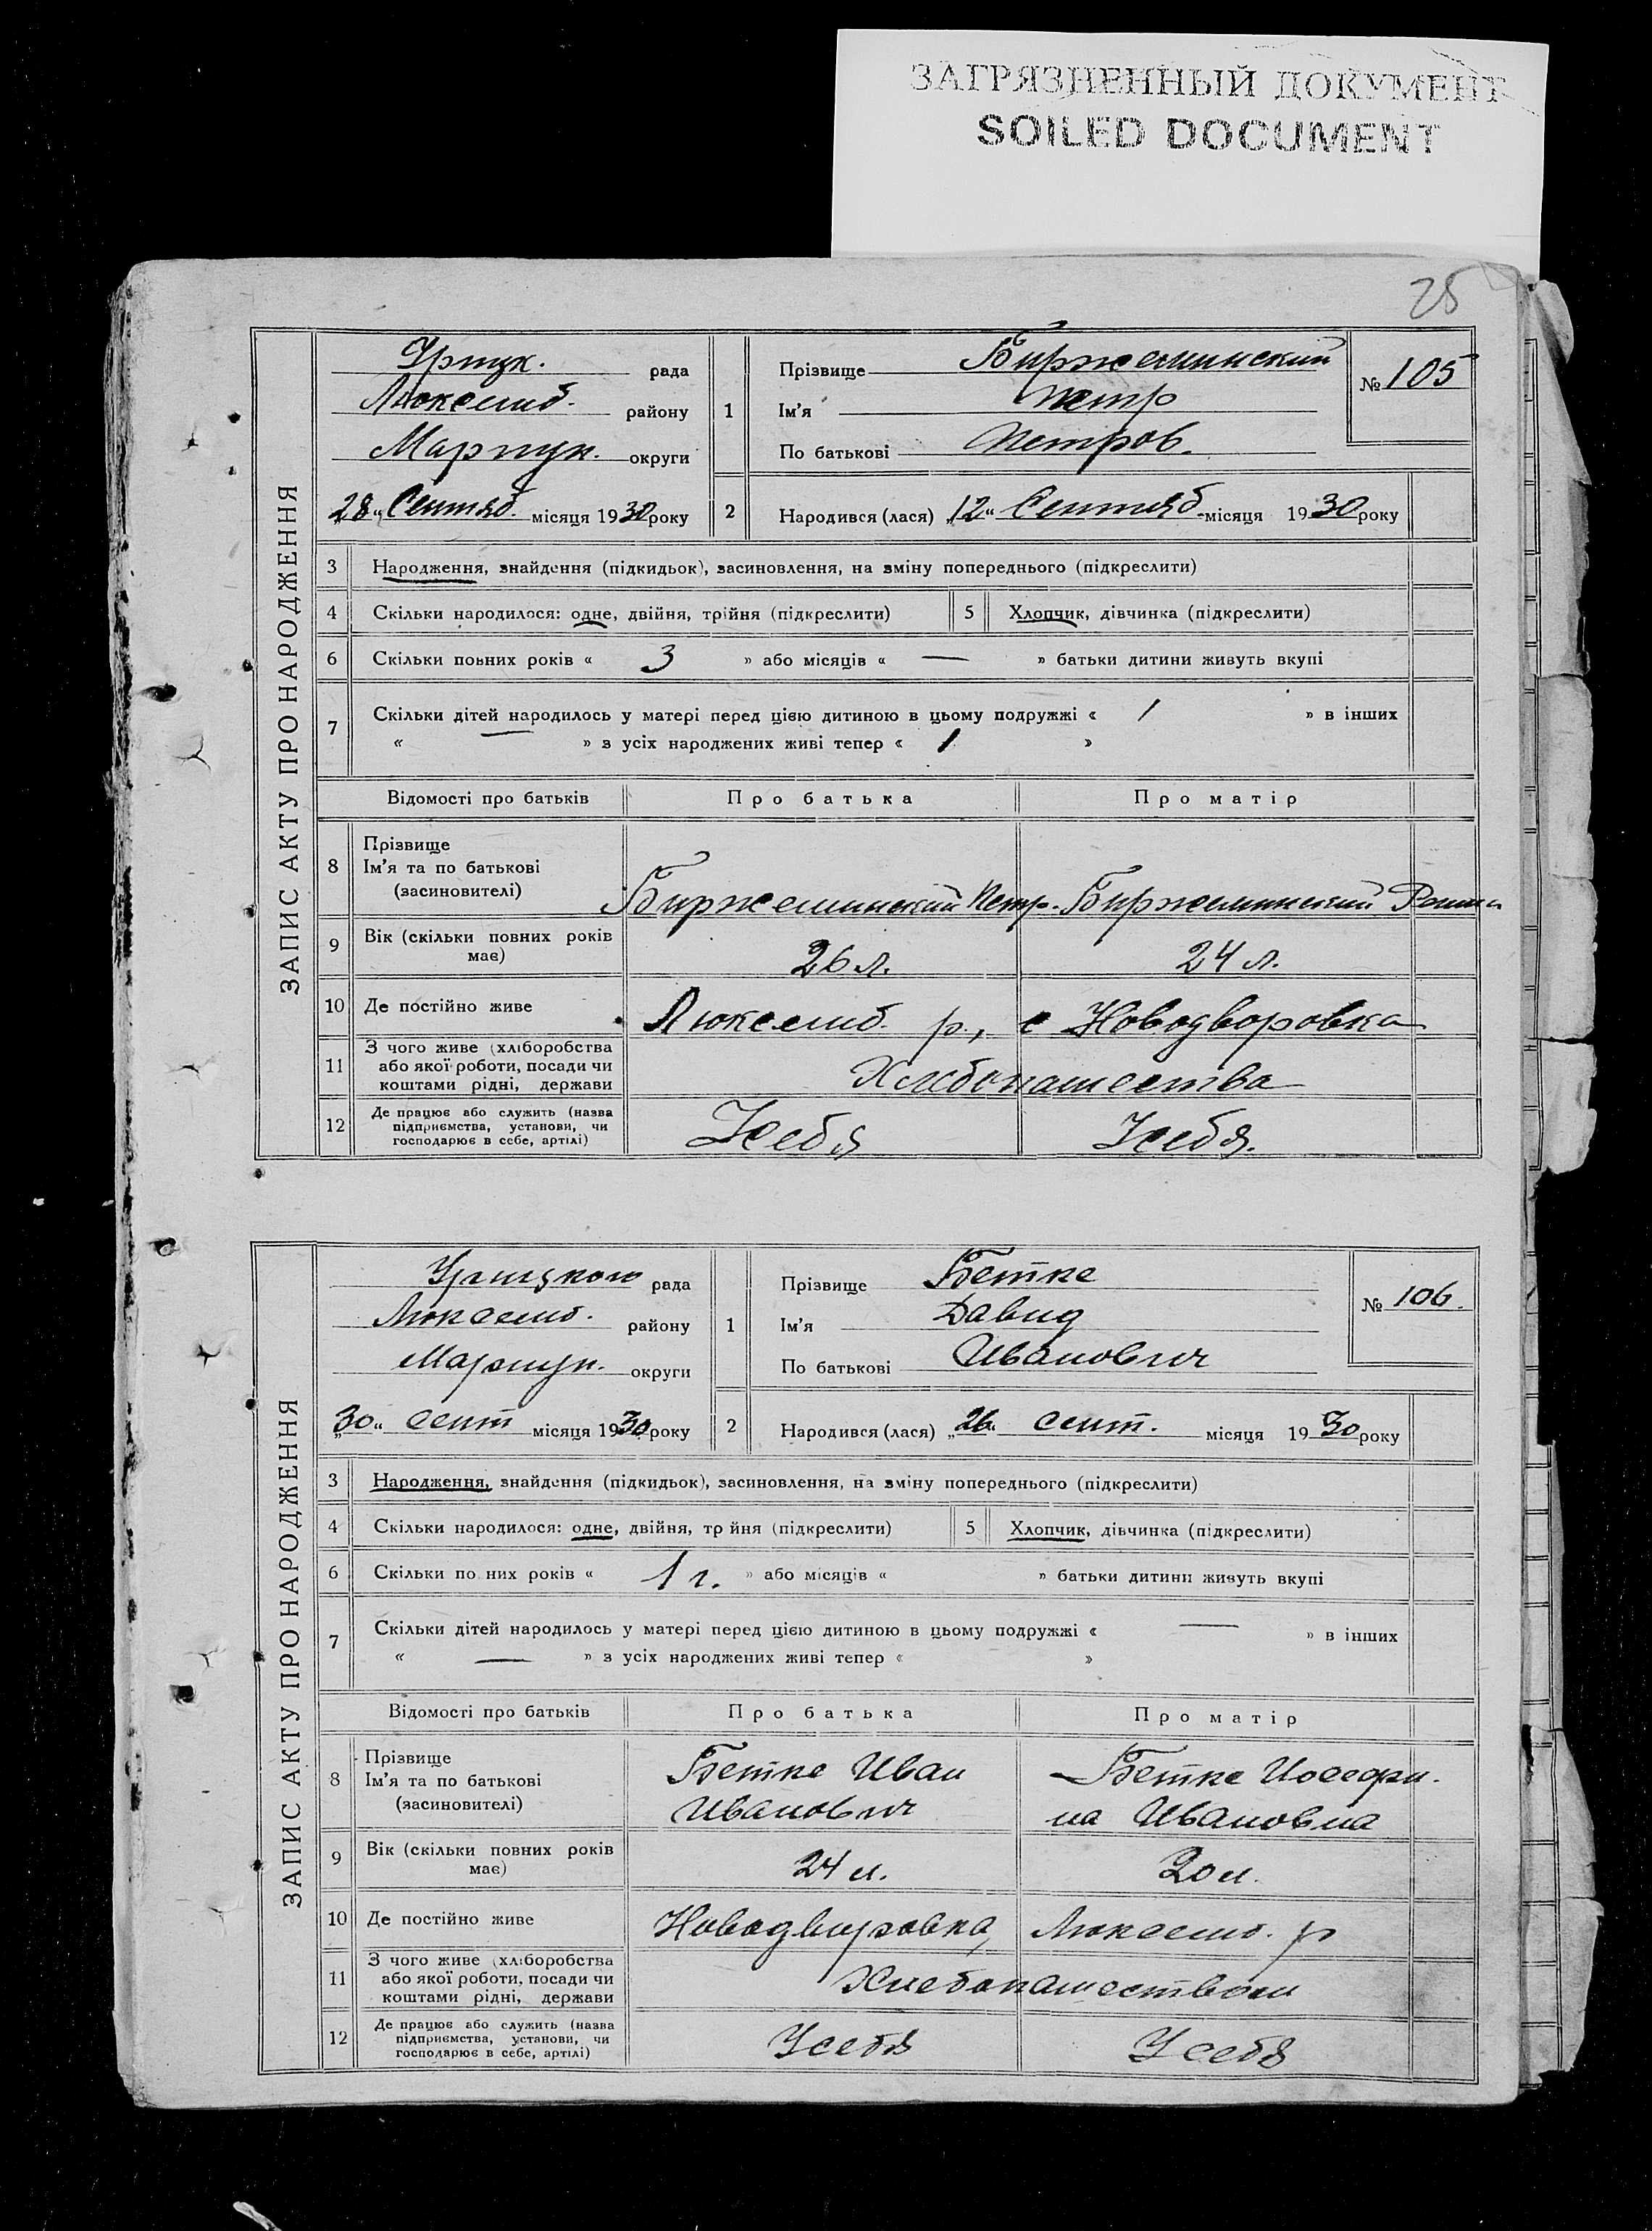 ЗАГРЯЗНЕННЫЙ ДОКУМЕНТ
SOILED DOCUMENT
25
ЗАПИС АКТУ ПРО НАРОДЖЕННЯ
рада
Люксемб. району
Мариуп. округи
„28“ Сентяб. місяця 1930 року
1
Прізвище
Ім'я Петр
По батькові Петров.
№ 105
2 Народився (лася) „12“ Сентяб. місяця 1930 року
3 Народження, знайдення (підкидьок), засиновлення, на зміну попереднього (підкреслити)
4 Скільки народилося: одне, двійня, трійня (підкреслити) 5 Хлопчик, дівчинка (підкреслити)
6 Скільки повних років « 3 » або місяців « — » батьки дитини живуть вкупі
7 Скільки дітей народилось у матері перед цією дитиною в цьому подружжі « 1 » в інших
« — » з усіх народжених живі тепер « 1 »
Відомості про батьків Про батька Про матір
8 Прізвище
Ім'я та по батькові
(засиновителі)
Петр.
9 Вік (скільки повних років
має)
26 л. 24 л.
10 Де постійно живе Люксемб. р., с Новодворовка
11 З чого живе (хліборобства
або якої роботи, посади чи
коштами рідні, держави
Хлебопашества
12 Де працює або служить (назва
підприємства, установи, чи
господарює в себе, артілі)
У себя У себя.
ЗАПИС АКТУ ПРО НАРОДЖЕННЯ
рада
Люксемб. району
Мариуп. округи
„30“ сент місяця 1930 року
1
Прізвище Бетке
Ім'я Давид
По батькові Иванович
№ 106.
2 Народився (лася) „26“ сент. місяця 1930 року
3 Народження, знайдення (підкидьок), засиновлення, на зміну попереднього (підкреслити)
4 Скільки народилося: одне, двійня, тр йня (підкреслити) 5 Хлопчик, дівчинка (підкреслити)
6 Скільки по них років « 1 г. » або місяців « » батьки дитини живуть вкупі
7 Скільки дітей народилось у матері перед цією дитиною в цьому подружжі « — » в інших
« — » з усіх народжених живі тепер « »
Відомості про батьків Про батька Про матір
8 Прізвище
Ім'я та по батькові
(засиновителі)
Бетке Иван
Иванович
Бетке Иосефи-
на Ивановна
9 Вік (скільки повних років
має)
24 л. 20 л.
10 Де постійно живе Новодворовка, Люксемб. р
11 З чого живе (хліборобства
або якої роботи, посади чи
коштами рідні, держави
Хлебопашеством
12 Де працює або служить (назва
підприємства, установи, чи
господарює в себе, артілі)
У себя У себя